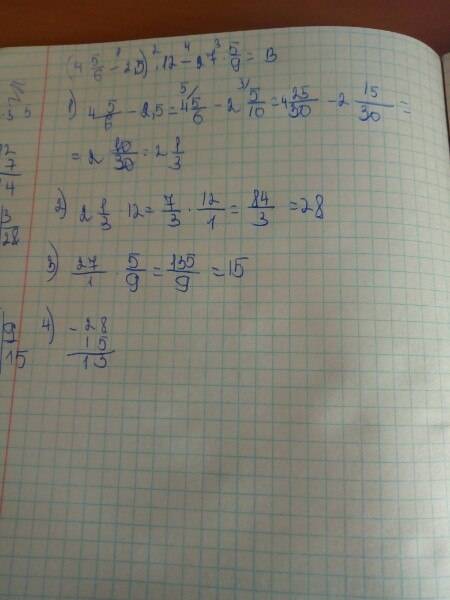 (4 5/6 - 2,5) · 12 - 27 · 5/9 = 13
1) 4 5/6 - 2,5 = 4 5/6 - 2 5/10 = 4 25/30 - 2 15/30 =
= 2 10/30 = 2 1/3
2) 2 1/3 12 = 7/3 · 12/1 = 84/3 = 28
3) 27/1 5/9 = 135/9 = 15
4) - 28
15
13